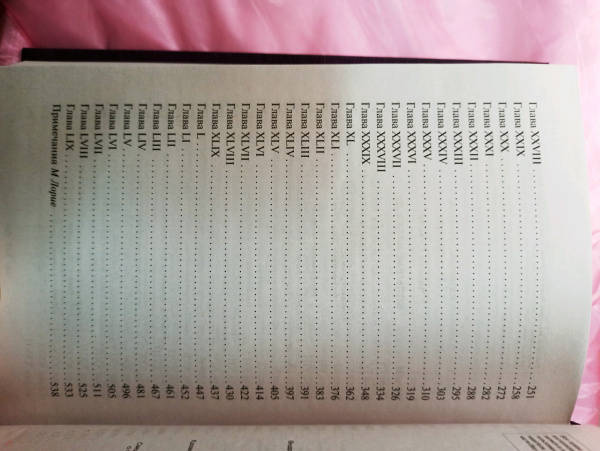 Глава XXVIII . . . . . . . . . . . . . . . . . . . . 251
Глава XXIX . . . . . . . . . . . . . . . . . . . . 258
Глава XXX . . . . . . . . . . . . . . . . . . . . 272
Глава XXXI . . . . . . . . . . . . . . . . . . . . 282
Глава XXXII . . . . . . . . . . . . . . . . . . . . 288
Глава XXXIII . . . . . . . . . . . . . . . . . . . . 295
Глава XXXIV . . . . . . . . . . . . . . . . . . . . 303
Глава XXXV . . . . . . . . . . . . . . . . . . . . 310
Глава XXXVI . . . . . . . . . . . . . . . . . . . . 319
Глава XXXVII . . . . . . . . . . . . . . . . . . . . 326
Глава XXXVIII . . . . . . . . . . . . . . . . . . . . 334
Глава XXXIX . . . . . . . . . . . . . . . . . . . . 348
Глава XL . . . . . . . . . . . . . . . . . . . . 362
Глава XLI . . . . . . . . . . . . . . . . . . . . 376
Глава XLII . . . . . . . . . . . . . . . . . . . . 383
Глава XLIII . . . . . . . . . . . . . . . . . . . . 391
Глава XLIV . . . . . . . . . . . . . . . . . . . . 397
Глава XLV . . . . . . . . . . . . . . . . . . . . 405
Глава XLVI . . . . . . . . . . . . . . . . . . . . 414
Глава XLVII . . . . . . . . . . . . . . . . . . . . 422
Глава XLVIII . . . . . . . . . . . . . . . . . . . . 430
Глава XLIX . . . . . . . . . . . . . . . . . . . . 437
Глава L . . . . . . . . . . . . . . . . . . . . 447
Глава LI . . . . . . . . . . . . . . . . . . . . 452
Глава LII . . . . . . . . . . . . . . . . . . . . 461
Глава LIII . . . . . . . . . . . . . . . . . . . . 467
Глава LIV . . . . . . . . . . . . . . . . . . . . 481
Глава LV . . . . . . . . . . . . . . . . . . . . 496
Глава LVI . . . . . . . . . . . . . . . . . . . . 505
Глава LVII . . . . . . . . . . . . . . . . . . . . 511
Глава LVIII . . . . . . . . . . . . . . . . . . . . 525
Глава LIX . . . . . . . . . . . . . . . . . . . . 533
Примечания М. Лорие . . . . . . . . . . . . . . . . . . . . 538